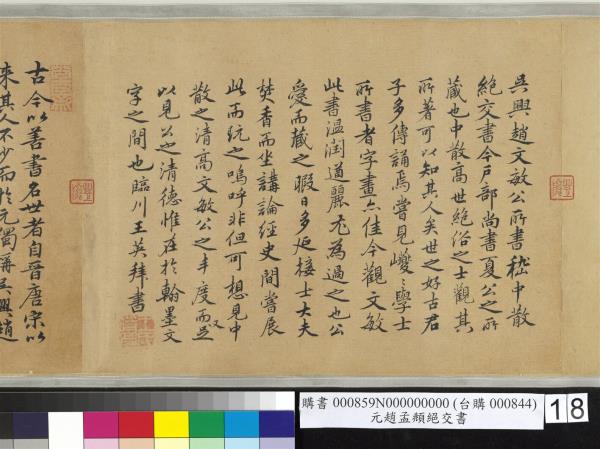 吳興趙文敏公所書嵇中散
絕交書今戶部尚書夏公之所
藏也中散高世絕俗之士觀其
所著可以知其人矣世之好古君
子多傳誦焉嘗見巙〻學士
所書者字畫亦佳今觀文敏
此書溫潤遒麗尤為過之也公
愛而藏之暇日多延接士大夫
焚香而坐講論經史間嘗展
此而玩之嗚呼非但可想見中
散之清高文敏公之丰度而又足
以見公之清德惟在於翰墨文
字之間也臨川王英拜書
古今以善書名世者自晉唐宋以
來其人不少而於元獨稱吳興趙
購書 000859N000000000 (台購 000844)
元趙孟頫絕交書
18